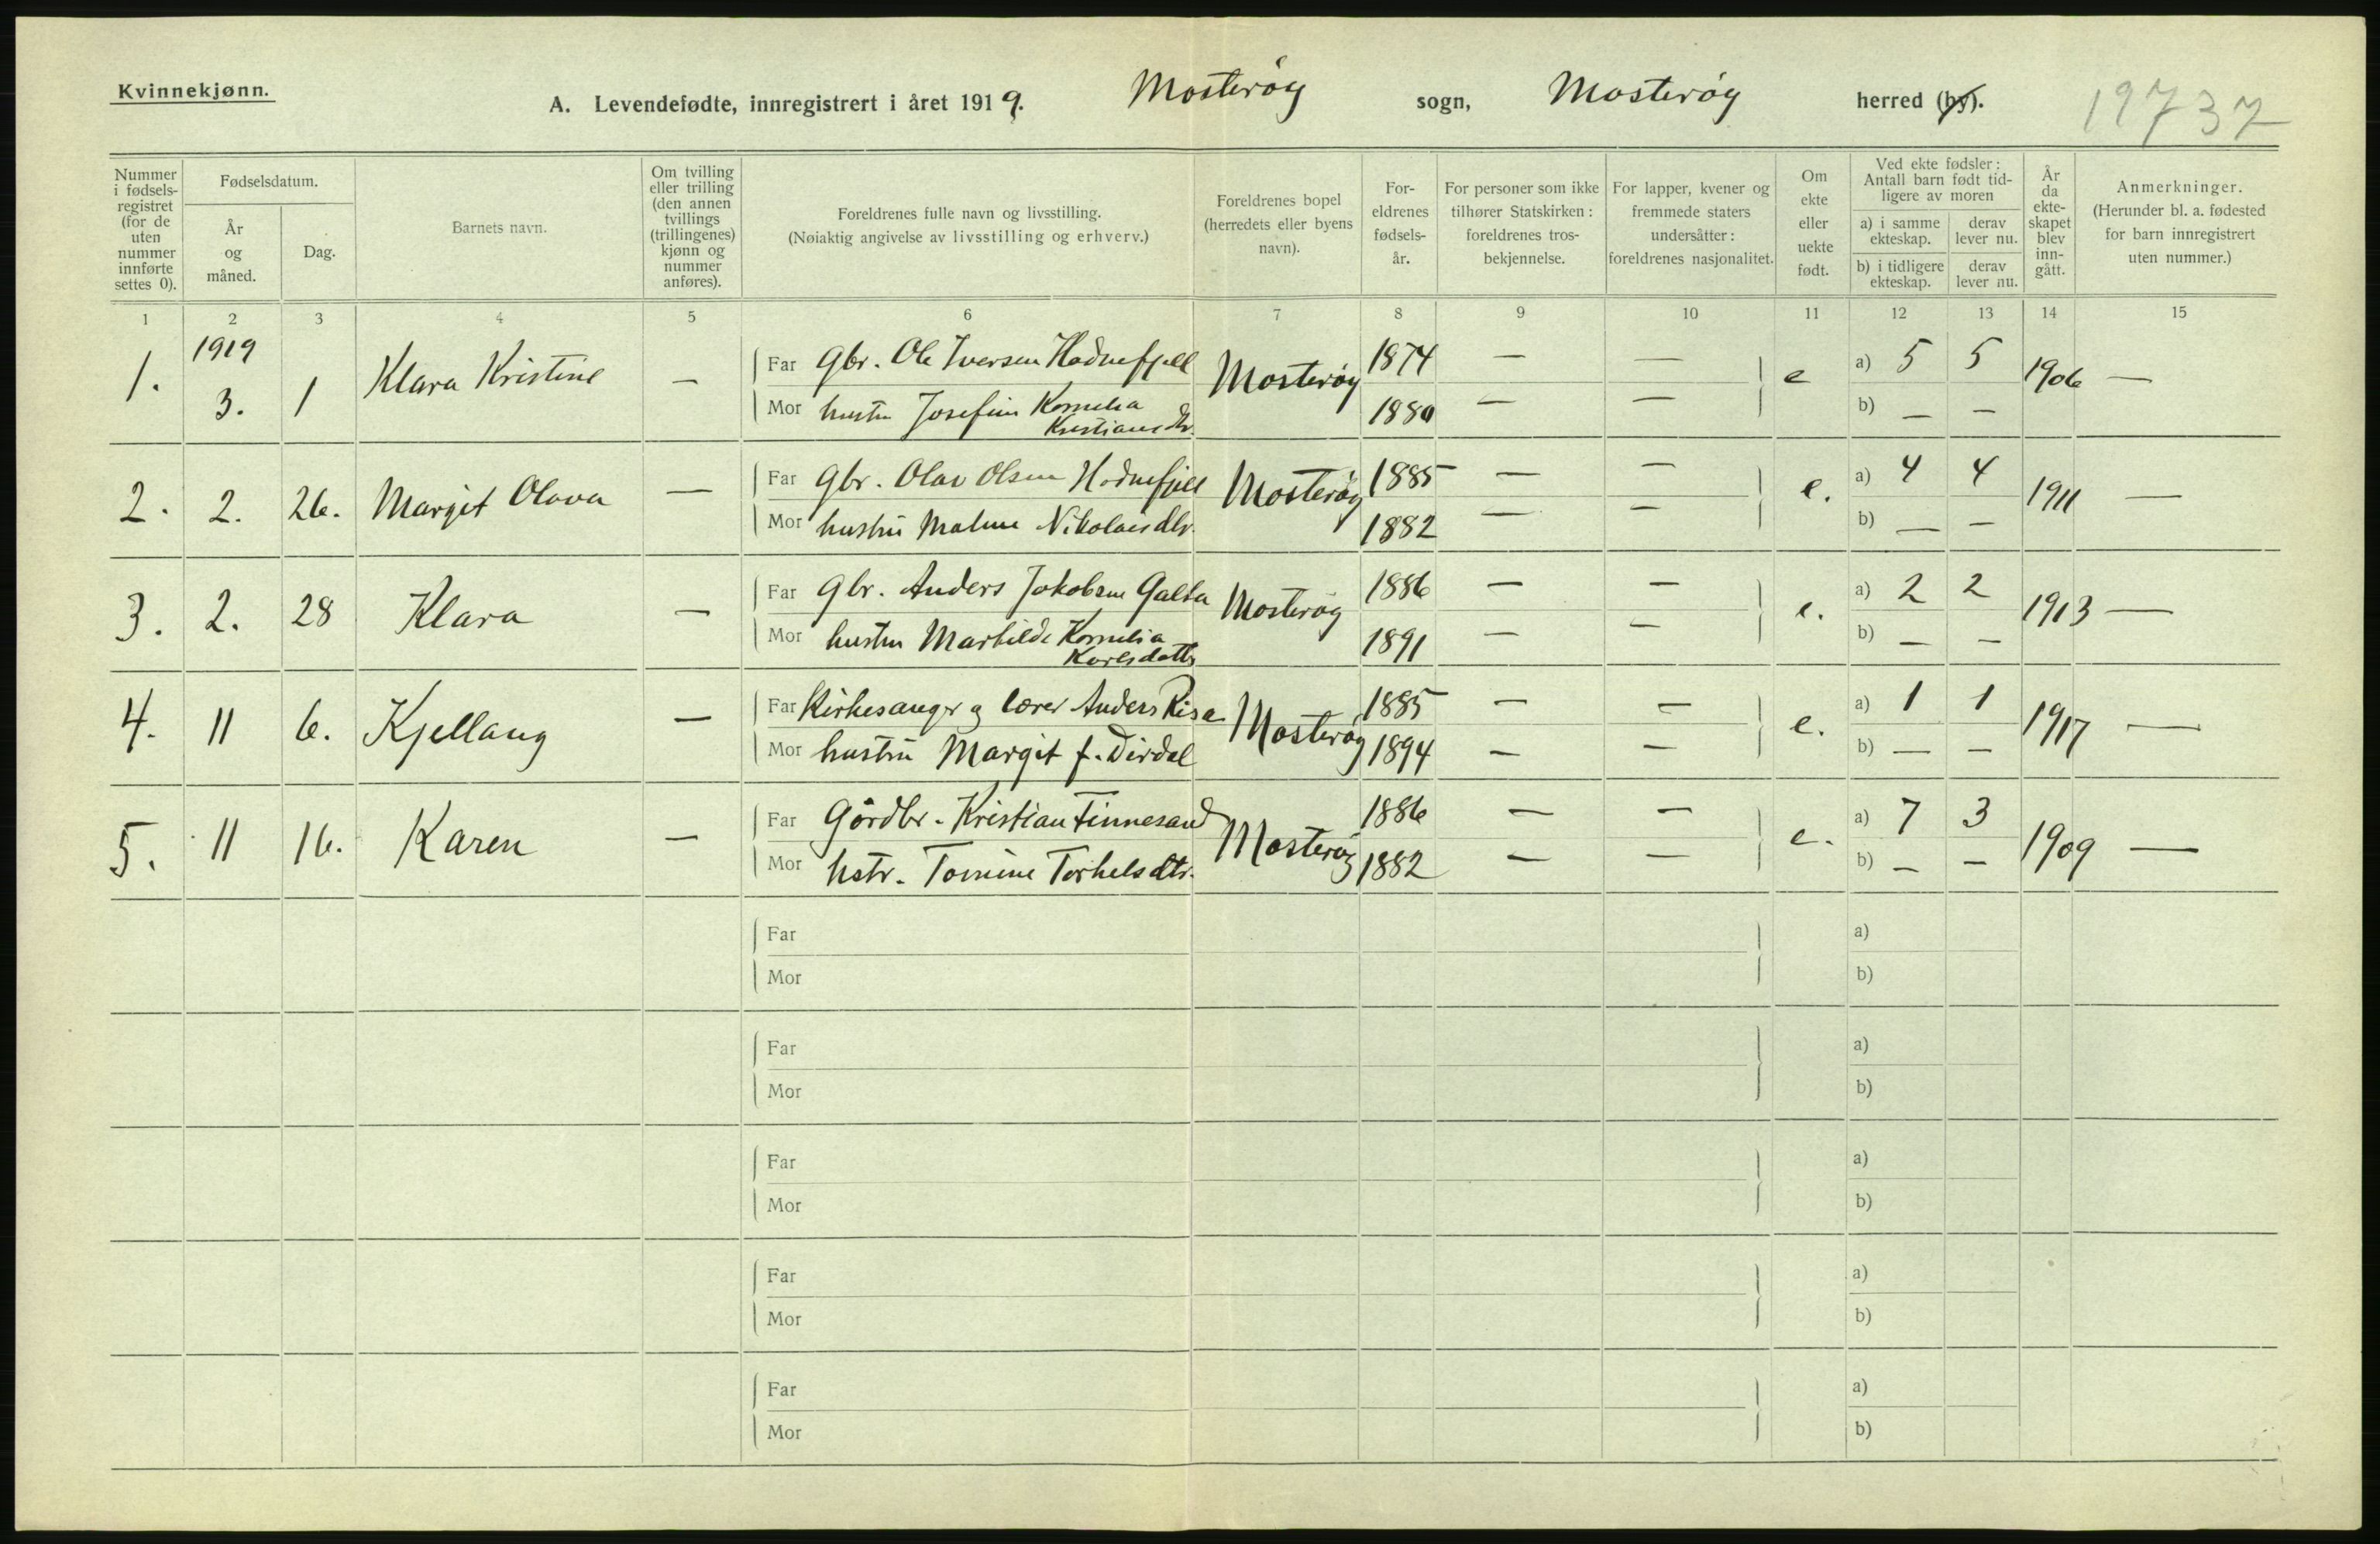 Kvinnekjønn.
A. Levendefødte, innregistrert i året 1919. Mosterøy sogn, Mosterøy herred (by). 19737
Nummer i fødsels-registret (for de uten nummer innførte settes 0).
Fødselsdatum.
År og måned.
Dag.
Barnets navn.
Om tvilling eller trilling (den annen tvillings (trillingenes) kjønn og nummer anføres).
Foreldrenes fulle navn og livsstilling.
(Nøiaktig angivelse av livsstilling og erhverv.)
Foreldrenes bopel (herredets eller byens navn).
For-eldrenes fødsels-år.
For personer som ikke tilhører Statskirken: foreldrenes tros-bekjennelse.
For lapper, kvener og fremmede staters undersåtter: foreldrenes nasjonalitet.
Om ekte eller uekte født.
Ved ekte fødsler: Antall barn født tid-ligere av moren
a) i samme ekteskap.
derav lever nu.
b) i tidligere ekteskap.
derav lever nu.
År da ekte-skapet blev inn-gått.
Anmerkninger.
(Herunder bl. a. fødested for barn innregistrert uten nummer.)
1 2 3 4 5 6 7 8 9 10 11 12 13 14 15
1. 1919 3. 1 Klara Kristine — Far Gbr. Ole Iversen Hodnefjell Mosterøy 1874 — — e a) 5 5 1906 —
Mor hustru Josefine Kornelia Kristiansdtr. 1880 — — b) — —
2. 2. 26. Margit Olava — Far Gbr. Olav Olsen Hodnefjell Mosterøy 1885 — — e. a) 4 4 1911 —
Mor hustru Malene Nikolaisdtr. 1882 — — b) — —
3. 2. 28 Klara — Far Gbr. Anders Jakobsen Galta Mosterøy 1886 — — e. a) 2 2 1913 —
Mor hustru Marthilde Kornelia Karlsdatter 1891 — — b) — —
4. 11 6. Kjellaug — Far Kirkesanger og lærer Anders Risa Mosterøy 1885 — — e. a) 1 1 1917 —
Mor hustru Margit f. Dirdal 1894 — — b) — —
5. 11 16. Karen — Far Gårdbr. Kristian Finnesand Mosterøy 1886 — — e. a) 7 3 1909 —
Mor hstr. Tomine Torkelsdtr. 1882 — — b) — —
Far a)
Mor b)
Far a)
Mor b)
Far a)
Mor b)
Far a)
Mor b)
Far a)
Mor b)